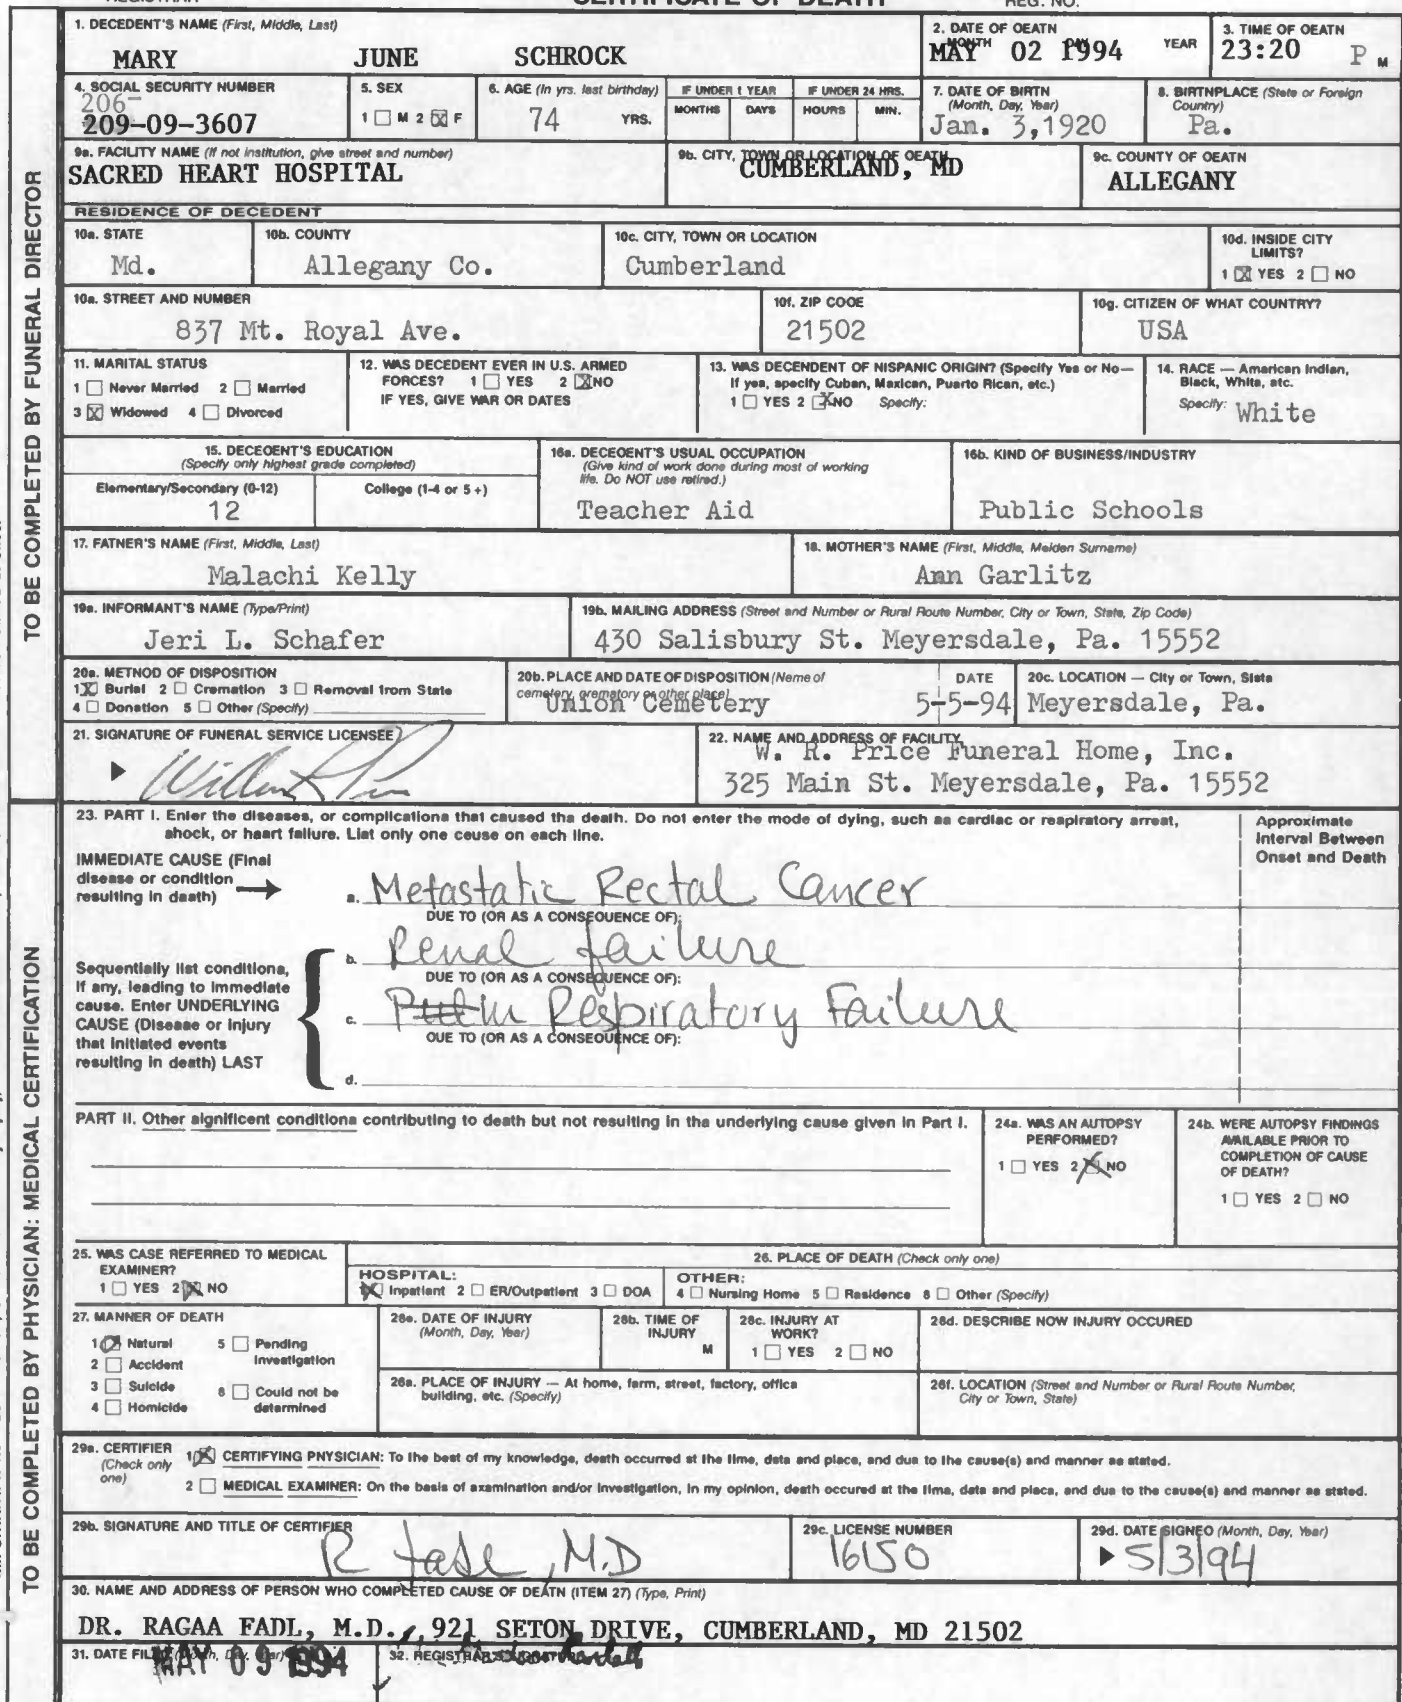 CERTIFICATE OF DEATH
REG. NO.
1. DECEDENT'S NAME (First, Middle, Last)
MARY JUNE SCHROCK
2. DATE OF DEATH
MONTH DAY YEAR
MAY 02 1994
3. TIME OF DEATH
23:20 P M
4. SOCIAL SECURITY NUMBER
206-
209-09-3607
5. SEX
1 M 2 X F
6. AGE (In yrs. last birthday)
74 YRS.
IF UNDER 1 YEAR
MONTHS DAYS
IF UNDER 24 HRS.
HOURS MIN.
7. DATE OF BIRTH
(Month, Day, Year)
Jan. 3,1920
8. BIRTHPLACE (State or Foreign
Country)
Pa.
9a. FACILITY NAME (If not institution, give street and number)
SACRED HEART HOSPITAL
9b. CITY, TOWN OR LOCATION OF DEATH
CUMBERLAND, MD
9c. COUNTY OF DEATH
ALLEGANY
RESIDENCE OF DECEDENT
10a. STATE
Md.
10b. COUNTY
Allegany Co.
10c. CITY, TOWN OR LOCATION
Cumberland
10d. INSIDE CITY
LIMITS?
1 X YES 2 NO
10e. STREET AND NUMBER
837 Mt. Royal Ave.
10f. ZIP CODE
21502
10g. CITIZEN OF WHAT COUNTRY?
USA
11. MARITAL STATUS
1 Never Married 2 Married
3 X Widowed 4 Divorced
12. WAS DECEDENT EVER IN U.S. ARMED
FORCES? 1 YES 2 X NO
IF YES, GIVE WAR OR DATES
13. WAS DECENDENT OF HISPANIC ORIGIN? (Specify Yes or No—
If yes, specify Cuban, Mexican, Puerto Rican, etc.)
1 YES 2 X NO Specify:
14. RACE — American Indian,
Black, White, etc.
Specify: White
15. DECEDENT'S EDUCATION
(Specify only highest grade completed)
Elementary/Secondary (0-12) College (1-4 or 5+)
12
16a. DECEDENT'S USUAL OCCUPATION
(Give kind of work done during most of working
life. Do NOT use retired.)
Teacher Aid
16b. KIND OF BUSINESS/INDUSTRY
Public Schools
17. FATHER'S NAME (First, Middle, Last)
Malachi Kelly
18. MOTHER'S NAME (First, Middle, Maiden Surname)
Ann Garlitz
19a. INFORMANT'S NAME (Type/Print)
Jeri L. Schafer
19b. MAILING ADDRESS (Street and Number or Rural Route Number, City or Town, State, Zip Code)
430 Salisbury St. Meyersdale, Pa. 15552
20a. METHOD OF DISPOSITION
1 X Burial 2 Cremation 3 Removal from State
4 Donation 5 Other (Specify)
20b. PLACE AND DATE OF DISPOSITION (Name of
cemetery, crematory or other place)
Union Cemetery
DATE
5-5-94
20c. LOCATION — City or Town, State
Meyersdale, Pa.
21. SIGNATURE OF FUNERAL SERVICE LICENSEE
22. NAME AND ADDRESS OF FACILITY
W. R. Price Funeral Home, Inc.
325 Main St. Meyersdale, Pa. 15552
TO BE COMPLETED BY FUNERAL DIRECTOR
23. PART I. Enter the diseases, or complications that caused the death. Do not enter the mode of dying, such as cardiac or respiratory arrest,
shock, or heart failure. List only one cause on each line.
Approximate
Interval Between
Onset and Death
IMMEDIATE CAUSE (Final
disease or condition
resulting in death)
a. Metastatic Rectal Cancer
DUE TO (OR AS A CONSEQUENCE OF):
b. Renal failure
DUE TO (OR AS A CONSEQUENCE OF):
c. Pulm Respiratory Failure
DUE TO (OR AS A CONSEQUENCE OF):
d.
Sequentially list conditions,
if any, leading to immediate
cause. Enter UNDERLYING
CAUSE (Disease or injury
that initiated events
resulting in death) LAST
PART II. Other significant conditions contributing to death but not resulting in the underlying cause given in Part I.
24a. WAS AN AUTOPSY
PERFORMED?
1 YES 2 X NO
24b. WERE AUTOPSY FINDINGS
AVAILABLE PRIOR TO
COMPLETION OF CAUSE
OF DEATH?
1 YES 2 NO
25. WAS CASE REFERRED TO MEDICAL
EXAMINER?
1 YES 2 X NO
26. PLACE OF DEATH (Check only one)
HOSPITAL:
1 X Inpatient 2 ER/Outpatient 3 DOA
OTHER:
4 Nursing Home 5 Residence 6 Other (Specify)
27. MANNER OF DEATH
1 Natural 5 Pending
Investigation
2 Accident
3 Suicide 6 Could not be
determined
4 Homicide
28a. DATE OF INJURY
(Month, Day, Year)
28b. TIME OF
INJURY
M
28c. INJURY AT
WORK?
1 YES 2 NO
28d. DESCRIBE HOW INJURY OCCURED
28e. PLACE OF INJURY — At home, farm, street, factory, office
building, etc. (Specify)
28f. LOCATION (Street and Number or Rural Route Number,
City or Town, State)
29a. CERTIFIER
(Check only
one)
1 X CERTIFYING PHYSICIAN: To the best of my knowledge, death occurred at the time, date and place, and due to the cause(s) and manner as stated.
2 MEDICAL EXAMINER: On the basis of examination and/or investigation, in my opinion, death occured at the time, date and place, and due to the cause(s) and manner as stated.
29b. SIGNATURE AND TITLE OF CERTIFIER
R Fadl, M.D
29c. LICENSE NUMBER
16150
29d. DATE SIGNED (Month, Day, Year)
5/3/94
30. NAME AND ADDRESS OF PERSON WHO COMPLETED CAUSE OF DEATH (ITEM 27) (Type, Print)
DR. RAGAA FADL, M.D., 921 SETON DRIVE, CUMBERLAND, MD 21502
31. DATE FILED (Month, Day, Year)
MAY 09 1994
32. REGISTRAR'S SIGNATURE
TO BE COMPLETED BY PHYSICIAN: MEDICAL CERTIFICATION